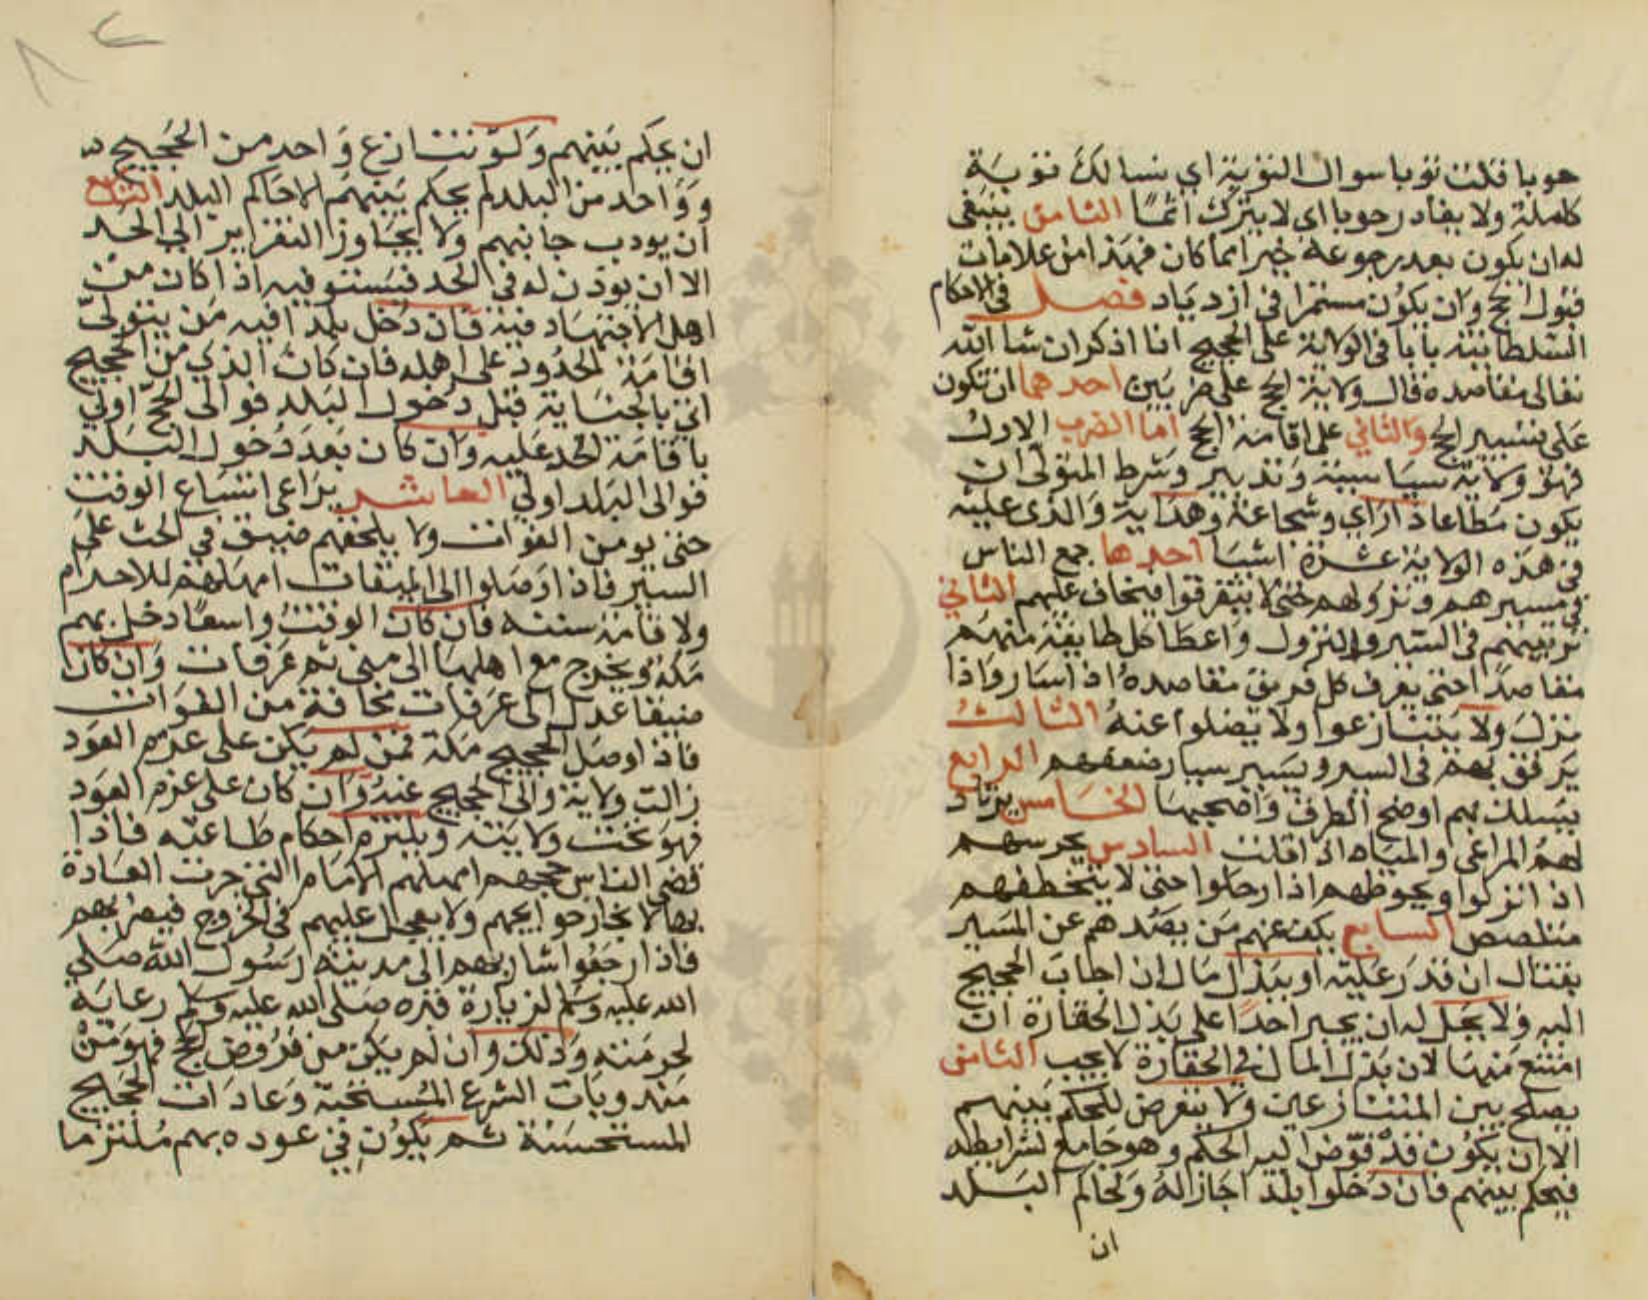 حوبا قلت توبا سوال التوبة اي نسالك توبة
كاملة ولا يغادر حوبا اى لا يترك اثما الثامن ينبغى
له ان يكون بعد رجوعه خيرا مما كان فهذا من علامات
قبول الحج وان يكون مستمرا في ازدياد فصل في الاحكام
السلطانية بابا في الولاية على الحجيج انا اذكر ان شا الله
تعالى مقاصده قال ولاية الحج على ضربين احدهما ان تكون
على تسيير الحج والثاني على اقامة الحج اما الضرب الاول
فهو ولاية سياسية وتدبير وشرط المتولي ان
يكون مطاعا ذا راي وشجاعة وهداية والذى عليه
في هذه الولاية عشرة اشيا احدها جمع الناس
في مسيرهم ونزولهم حتى لا يتفرقوا فيخاف عليهم الثاني
ترتيبهم في السير والنزول واعطا كل طايفة منهم
مقاصدا حتى يعرف كل فريق مقاصده اذا سار واذا
نزل ولا يتنازعوا ولا يضلوا عنه الثالث
يرفق بهم في السير ويسير بسيار ضعفهم الرابع
يسلك بهم اوضح الطرق واخصبها الخامس يرتاد
لهم المراعى والمياه اذا قلت السادس يحرسهم
اذا نزلوا ويحوطهم اذا رحلوا حتى لا يتخطفهم
متلصص السابع يكف عنهم من يصدهم عن المسير
بقتال ان قدر عليه او ببذل مال ان اجاب الحجيج
اليه ولا يحل له ان يجبر احدا على بذل الخفارة ان
امتنع منها لان بذل المال في الخفارة لا يجب الثامن
يصلح بين المتنازعين ولا يتعرض للحكم بينهم
الا ان يكون قد فوض اليه الحكم وهو جامع لشرايطه
فيحكم بينهم فان دخلوا بلدا جاز له ولحاكم البلد
ان
ان يحكم بينهم ولو تنازع واحد من الحجيج
وواحد من البلد لم يحكم بينهم الا حاكم البلد التاسع
ان يودب جانيهم ولا يجاوز التعزاير الى الحد
الا ان يوذن له في الحد فيستوفيه اذا كان من
اهل الاجتهاد فيه فان دخل بلدا فيه من يتولى
اقامة الحدود على اهله فان كان الذي من الحجيج
اتي بالجناية قبل دخول البلد فوالى الحج اولى
باقامة الحد عليه وان كان بعد دخول البلد
فوالى البلد اولى العاشر يراعى اتساع الوقت
حتى يومن الفوات ولا يلحقهم ضيق في الحث على
السير فاذا وصلوا الى الميقات امهلهم للاحرام
ولاقامة سننه فان كان الوقت واسعا دخل بهم
مكة ويخرج مع اهلها الى منى ثم عرفات وان كان
ضيقا عدل الى عرفات مخافة من الفوات
فاذا وصل الحجيج مكة فمن لم يكن على عزم العود
زالت ولاية والى الحجيج عنه وان كان على عزم العود
فهو تحت ولايته ويلتزم احكام طاعته فاذا
قضى الناس حجهم امهلهم الايام التي جرت العادة
بها لانجاز حوايجهم ولا يعجل عليهم في الخروج فيضر بهم
فاذا رجعوا سار بهم الى مدينة رسول الله صلي
الله عليه وسلم لزيارة قبره صلى الله عليه وسلم رعاية
لحرمته وذلك وان لم يكن من فروض الحج فهو من
مندوبات الشرع المستحبة وعادات الحجيج
المستحسنة ثم يكون في عوده بهم ملتزما